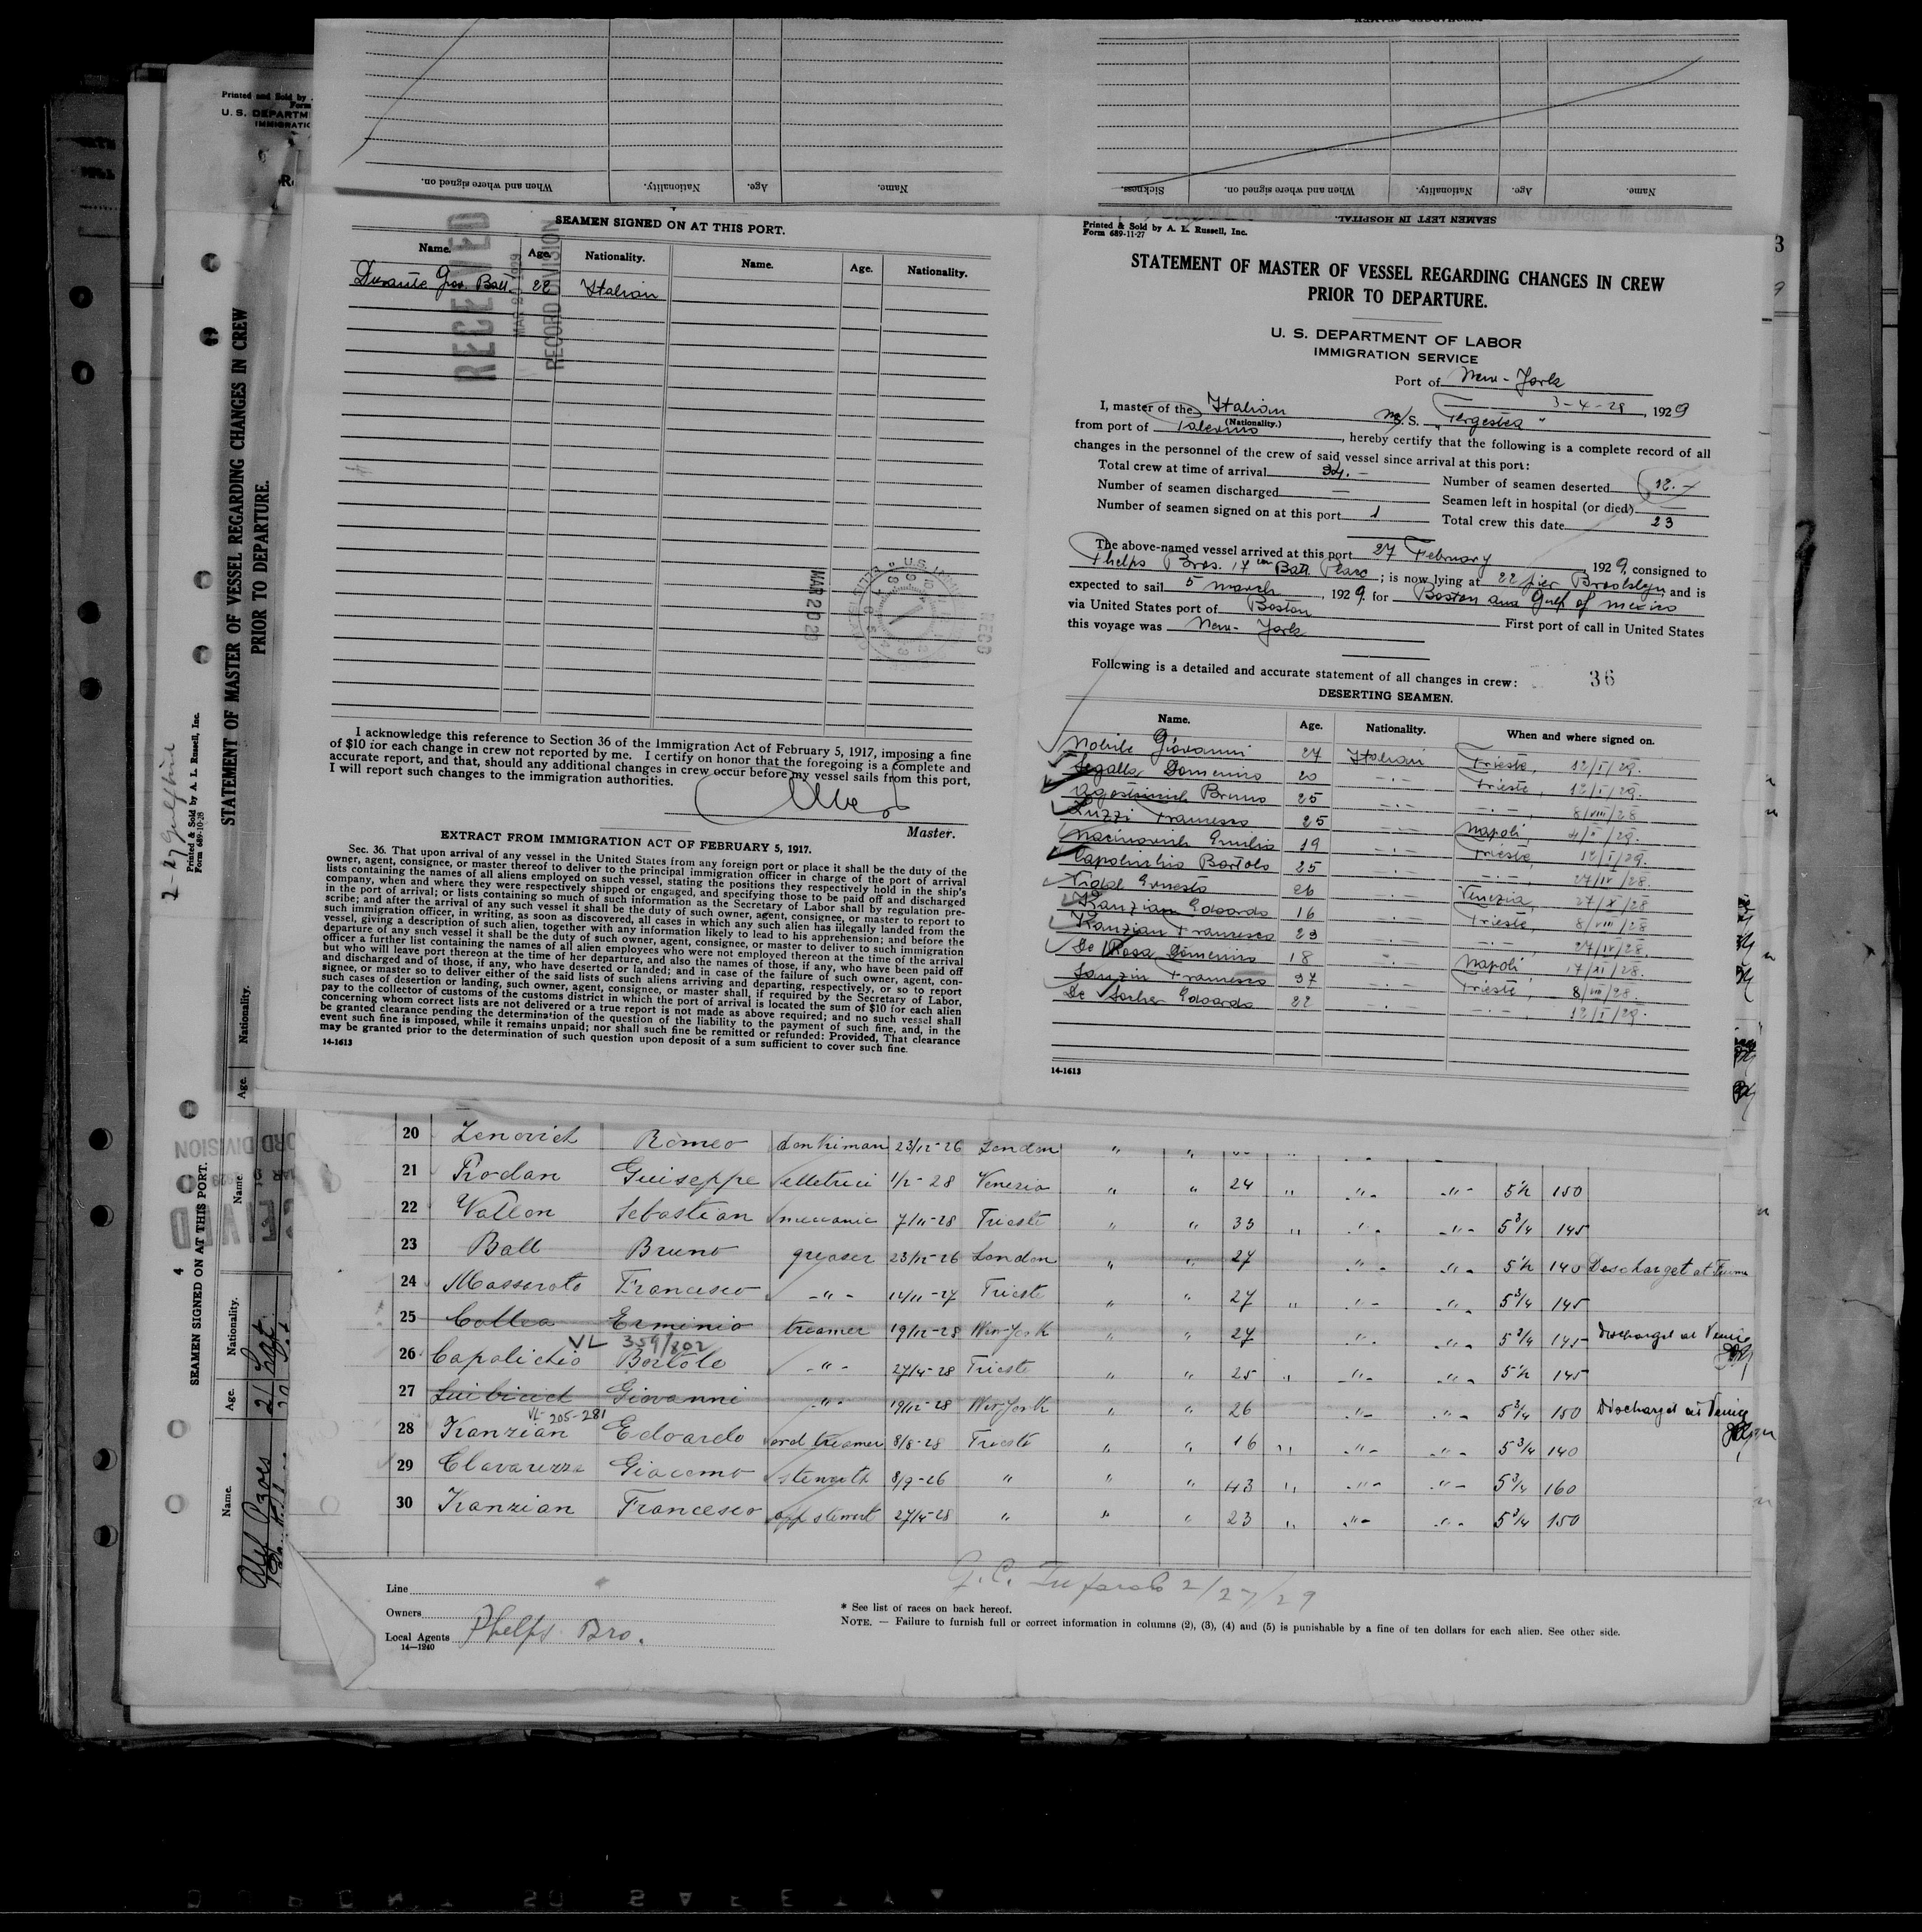 Name. Age. Nationality. When and where signed on.
Name. Age. Nationality. When and where signed on. Sickness.
SEAMEN LEFT IN HOSPITAL.
SEAMEN SIGNED ON AT THIS PORT.
Name. Age. Nationality. Name. Age. Nationality.
22 Italian
RECEIVED
RECORD DIVISION
MAR 20 29
I acknowledge this reference to Section 36 of the Immigration Act of February 5, 1917, imposing a fine
of $10 for each change in crew not reported by me. I certify on honor that the foregoing is a complete and
accurate report, and that, should any additional changes in crew occur before my vessel sails from this port,
I will report such changes to the immigration authorities.
Master.
EXTRACT FROM IMMIGRATION ACT OF FEBRUARY 5, 1917.
Sec. 36. That upon arrival of any vessel in the United States from any foreign port or place it shall be the duty of the
owner, agent, consignee, or master thereof to deliver to the principal immigration officer in charge of the port of arrival
lists containing the names of all aliens employed on such vessel, stating the positions they respectively hold in the ship's
company, when and where they were respectively shipped or engaged, and specifying those to be paid off and discharged
in the port of arrival; or lists containing so much of such information as the Secretary of Labor shall by regulation pre-
scribe; and after the arrival of any such vessel it shall be the duty of such owner, agent, consignee, or master to report to
such immigration officer, in writing, as soon as discovered, all cases in which any such alien has illegally landed from the
vessel, giving a description of such alien, together with any information likely to lead to his apprehension; and before the
departure of any such vessel it shall be the duty of such owner, agent, consignee, or master to deliver to such immigration
officer a further list containing the names of all alien employees who were not employed thereon at the time of the arrival
but who will leave port thereon at the time of her departure, and also the names of those, if any, who have been paid off
and discharged and of those, if any, who have deserted or landed; and in case of the failure of such owner, agent, con-
signee, or master so to deliver either of the said lists of such aliens arriving and departing, respectively, or so to report
such cases of desertion or landing, such owner, agent, consignee, or master shall, if required by the Secretary of Labor,
pay to the collector of customs of the customs district in which the port of arrival is located the sum of $10 for each alien
concerning whom correct lists are not delivered or a true report is not made as above required; and no such vessel shall
be granted clearance pending the determination of the question of the liability to the payment of such fine, and, in the
event such fine is imposed, while it remains unpaid; nor shall such fine be remitted or refunded: Provided, That clearance
may be granted prior to the determination of such question upon deposit of a sum sufficient to cover such fine.
14-1613
Printed & Sold by A. L. Russell, Inc.
Form 689-11-27
STATEMENT OF MASTER OF VESSEL REGARDING CHANGES IN CREW
PRIOR TO DEPARTURE.
U. S. DEPARTMENT OF LABOR
IMMIGRATION SERVICE
Port of New-York
3-4-28, 1929
I, master of the Italian (Nationality.) M/S. S. "Tergestea"
from port of Palermo, hereby certify that the following is a complete record of all
changes in the personnel of the crew of said vessel since arrival at this port:
Total crew at time of arrival 34.- Number of seamen deserted 12.-
Number of seamen discharged — Seamen left in hospital (or died)
Number of seamen signed on at this port 1 Total crew this date 23
The above-named vessel arrived at this port 27 February, 1929, consigned to
Phelps Bros. 17 Batt. Place; is now lying at 22 pier Brooklyn, and is
expected to sail 5 march, 1929. for Boston and Gulf of Mexico
via United States port of Boston First port of call in United States
this voyage was New-York
Following is a detailed and accurate statement of all changes in crew: 36
DESERTING SEAMEN.
Name. Age. Nationality. When and where signed on.
Nobile Giovanni 27 Italian Trieste, 12/I/29.
Segalla Domenico 20 -.- Trieste, 12/I/29.
Agostinich Bruno 25 -.- -.-, 8/VIII/28
Luzzi Francesco 25 -.- Napoli,
Macinovich Emilio 19 -.- Trieste, 12/I/29.
Capolichio Bortolo 25 -.- -.-, 27/IV/28.
Vidal Ernesto 26 -.- Venezia, 27/X/28
Kanzian Edoardo 16 -.- Trieste, 8/VIII/28
Kanzian Francesco 23 -.- -.-, 27/IV/28.
De Rosa Domenico 18 -.- Napoli 17/XI/28.
Francesco 37 -.- Trieste, 8/VIII/28.
Edoardo 22 -.- -.-, 12/I/29.
14-1613
20 Zenovich Romeo donkiman 23/12-26 London " "
21 Rodan Guiseppe elletrici 1/2-28 Venezia " " 24 " " " 5 1/2 150
22 Vallon Sebastian meccanic 7/11-28 Trieste " " 33 " " " 5 3/4 145
23 Ball Bruno greaser 23/12-26 London " " 27 " " 5 1/2 140 Descharget at Fiume
24 Massaroto Francesco -"- 14/11-27 Trieste " " 27 " " " 5 3/4 145
25 Collea Erminio treamer 19/12-28 New-York " " 27 " " 5 3/4 145 Discharget at Venice
VL 359/802
26 Capolichio Bortolo -"- 27/4-28 Trieste " " 25 " " " 5 1/2 145
27 Giovanni -"- 19/12-28 New-York " " 26 " " 5 3/4 150 Discharget at Venice
VL-205-281
28 Kanzian Edoardo ord treamer 8/8-28 Trieste " " 16 " " " 5 3/4 140
29 Clavarezza Giacomo stewoth 8/9-26 " " " 43 " " " 5 3/4 160
30 Kanzian Francesco app stewort 27/4-28 " " " 23 " " " 5 3/4 150
Line
Owners
Local Agents Phelps Bro.
14—1240
2/27/29
* See list of races on back hereof.
NOTE. — Failure to furnish full or correct information in columns (2), (3), (4) and (5) is punishable by a fine of ten dollars for each alien. See other side.
Printed and Sold by
Form
U. S. DEPARTM
IMMIGRATIO
Printed & Sold by A. L. Russell, Inc.
Form 689-10-28
STATEMENT OF MASTER OF VESSEL REGARDING CHANGES IN CREW
PRIOR TO DEPARTURE.
4
SEAMEN SIGNED ON AT THIS PORT.
Name. Age. Nationality. Name. Age. Nationality.